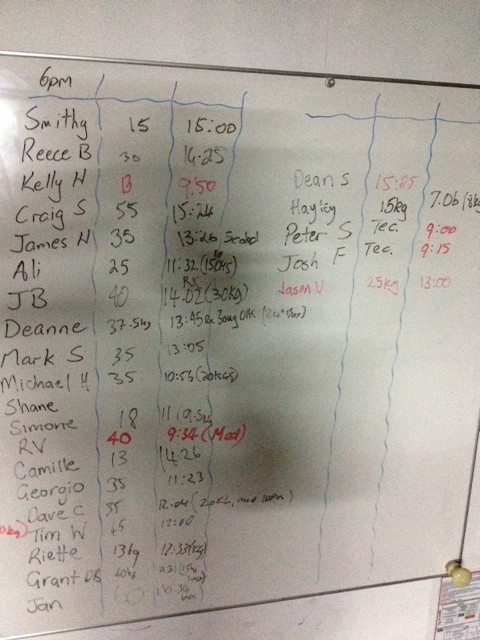 6pm
Smithy 15 15:00
Reece B 30 14:25
Kelly H B 9:50
Craig S 55 15:24
James H 35 13:26 Scaled
Ali 25 11:32
JB 40 14:02 (30kg)
Deanne 37.5kg 13:45
Mark S 35 13:05
Michael H 35 10:53
Shane
Simone 18 11
RV 40 9:34 (Mod)
Camille 13 14:26
Georgio 35 11:23
Dave C 35 12:04
Tim W 45 12:00
Riette 13kg 12:33
Grant
Jan
Dean S 15:05
Hayley 15kg 7.06
Peter S Tec. 9:00
Josh F Tec. 9:15
Jason V 25kg 13:00